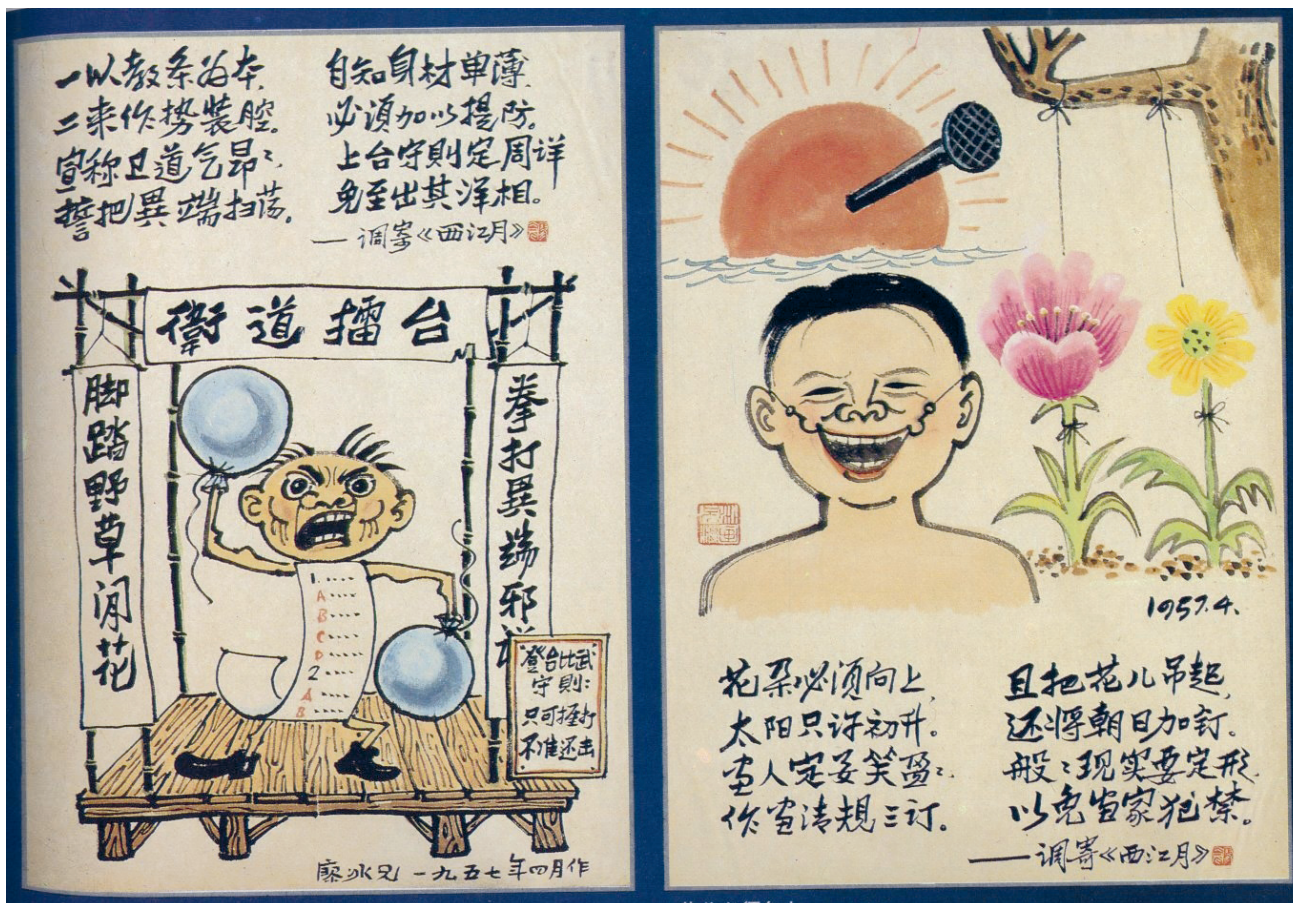 一以教条为本，
二来作势装腔。
宣称卫道气昂〻，
誓把異端扫荡。
自知身材单薄，
必须加以提防。
上台守則定周详
免至出其洋相。
——调寄《西江月》
衞道擂台
脚踏野草闲花
拳打異端邪説
1....
A....
B....
C....
D....
2....
A....
B....
登台比武
守則：
只可捱打
不准还击
廖冰兄一九五七年四月作
1957.4.
花朵必须向上，
太阳只许初升。
画人定要笑盈〻，
作画清規三订。
且把花儿吊起，
还将朝日加钉。
般〻现实要定形，
以免当家犯禁。
——调寄《西江月》